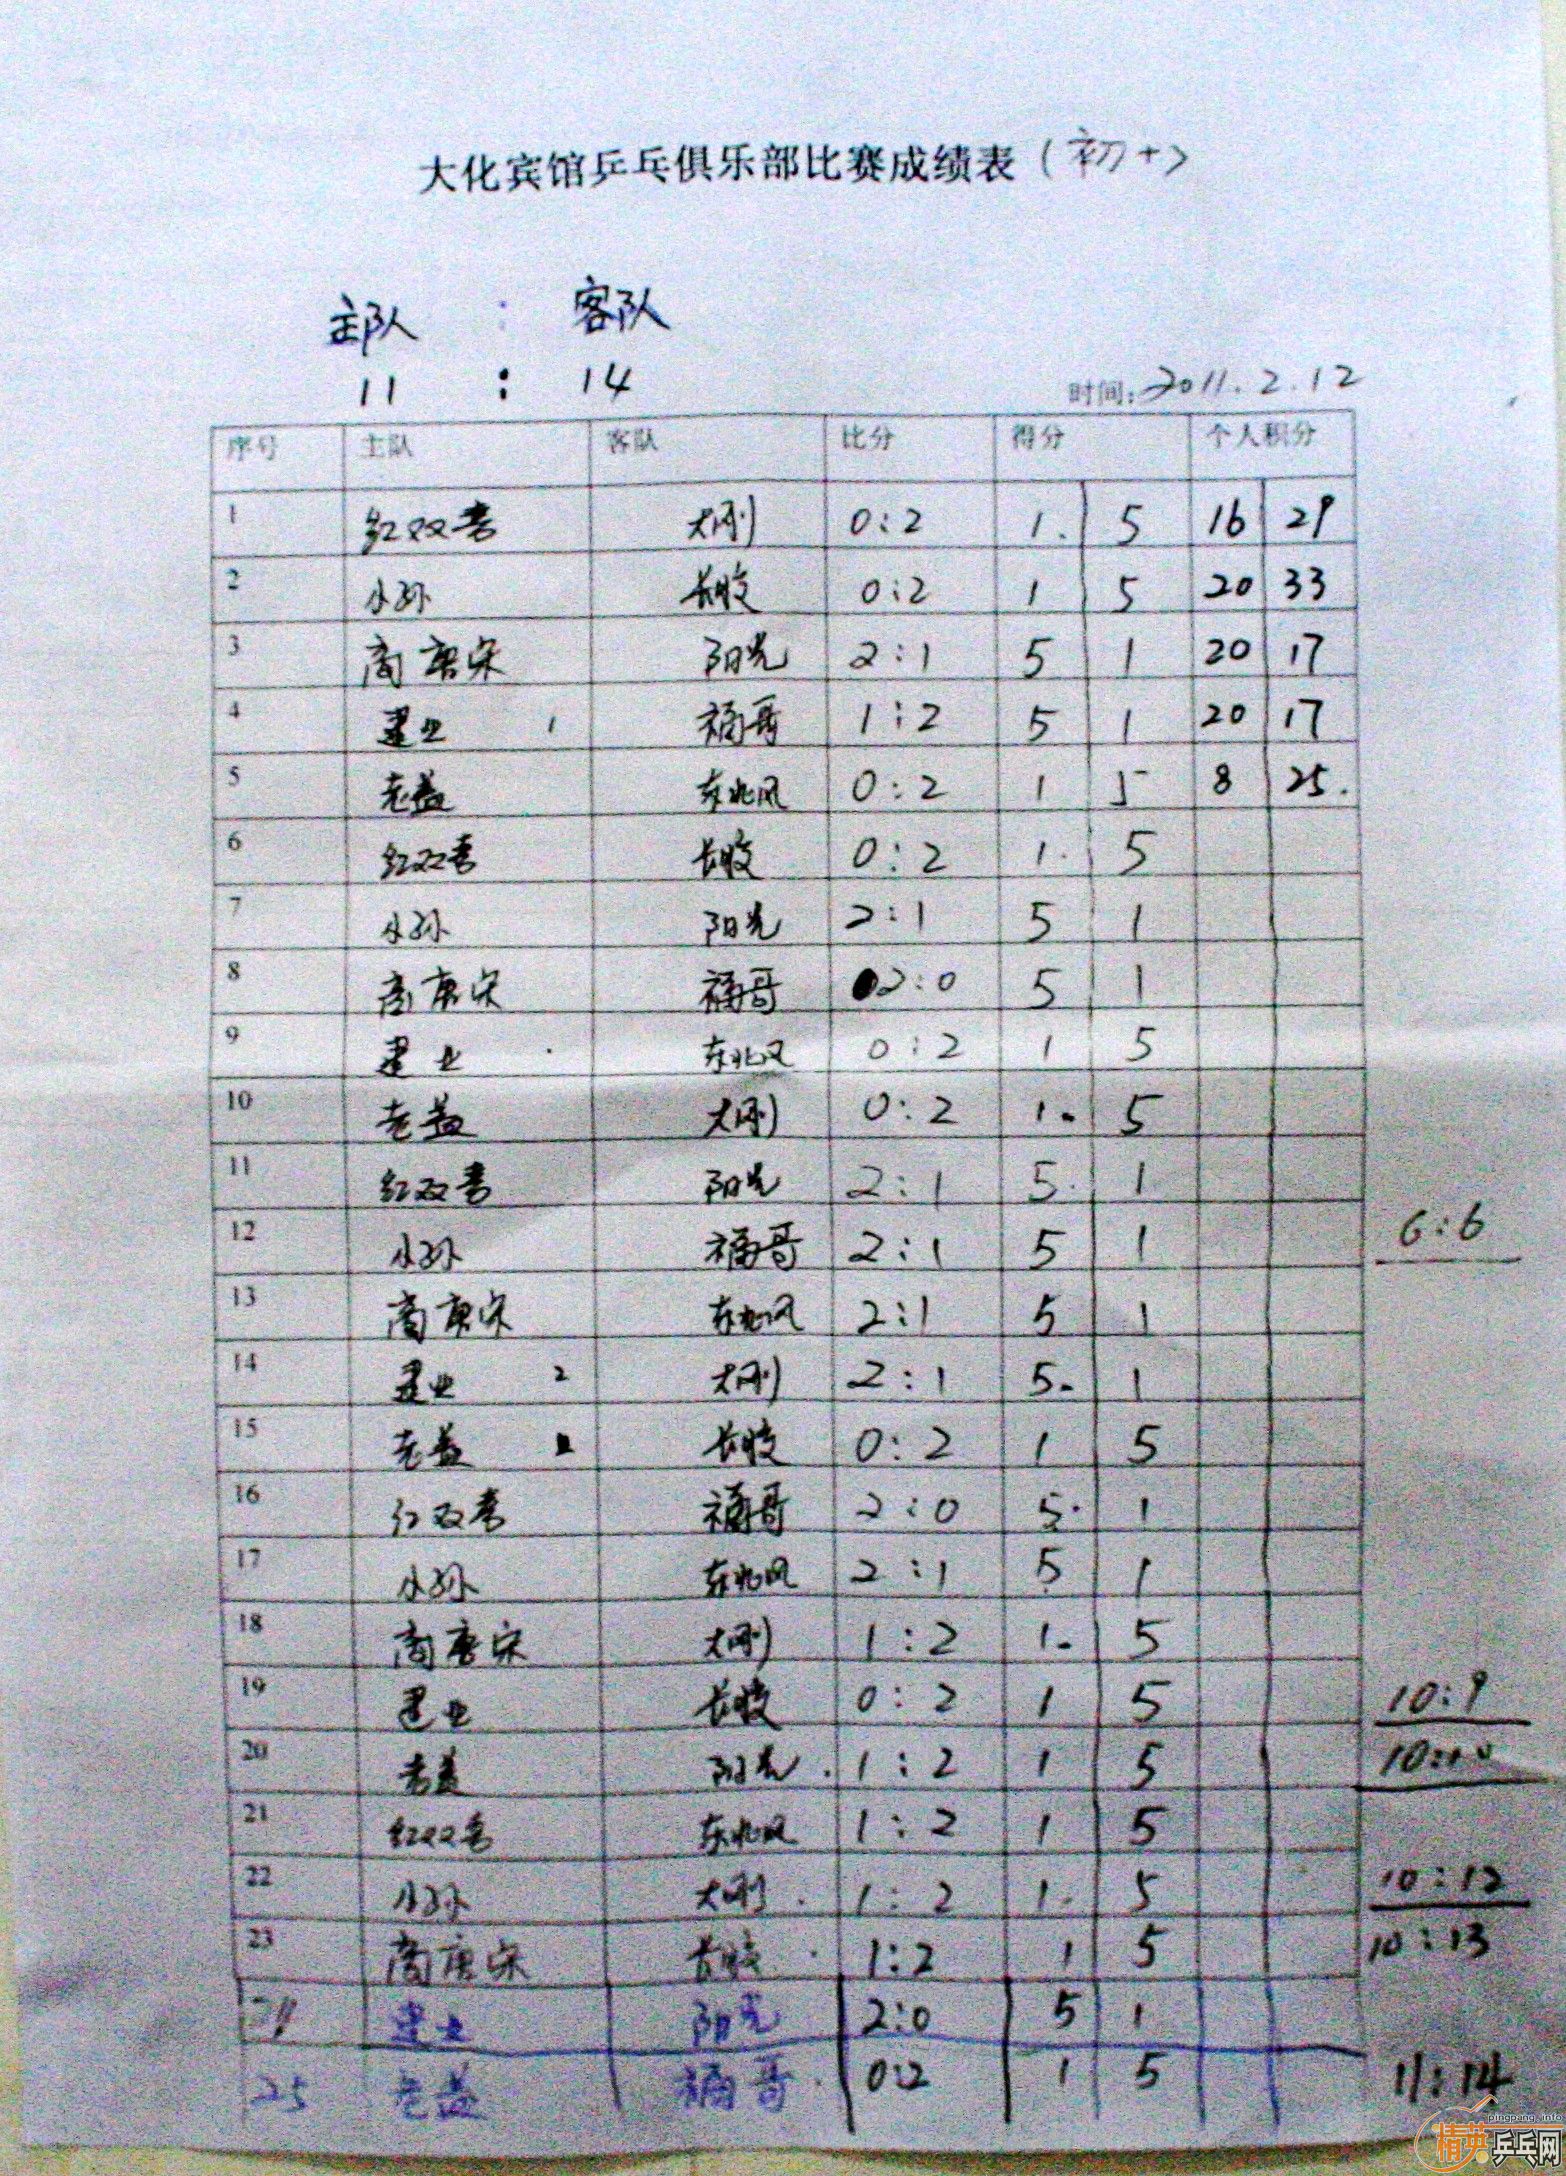 大化宾馆乒乓俱乐部比赛成绩表(初+)
主队 : 客队
11 : 14
时间:2011.2.12
序号 主队 客队 比分 得分 个人积分
1 红双喜 大刚 0:2 1. 5 16 29
2 小孙 长胶 0:2 1 5 20 33
3 商唐宋 阳光 2:1 5 1 20 17
4 建业 1 福哥 1:2 5 1 20 17
5 老益 东北风 0:2 1 5 8 25.
6 红双喜 长胶 0:2 1. 5
7 小孙 阳光 2:1 5 1
8 商唐宋 福哥 2:0 5 1
9 建业 东北风 0:2 1 5
10 老益 大刚 0:2 1. 5
11 红双喜 阳光 2:1 5. 1
12 小孙 福哥 2:1 5 1 6:6
13 商唐宋 东北风 2:1 5 1
14 建业 2 大刚 2:1 5. 1
15 老益 长胶 0:2 1 5
16 红双喜 福哥 2:0 5. 1
17 小孙 东北风 2:1 5 1
18 商唐宋 大刚 1:2 1. 5
19 建业 长胶 0:2 1 5 10:9
20 老益 阳光 1:2 1 5 10:10
21 红双喜 东北风 1:2 1 5
22 小孙 大刚 1:2 1. 5 10:12
23 商唐宋 长胶 1:2 1 5 10:13
24 建业 阳光 2:0 5 1
25 老益 福哥 0:2 1 5 11:14
pingpang.info
精英乒乓网